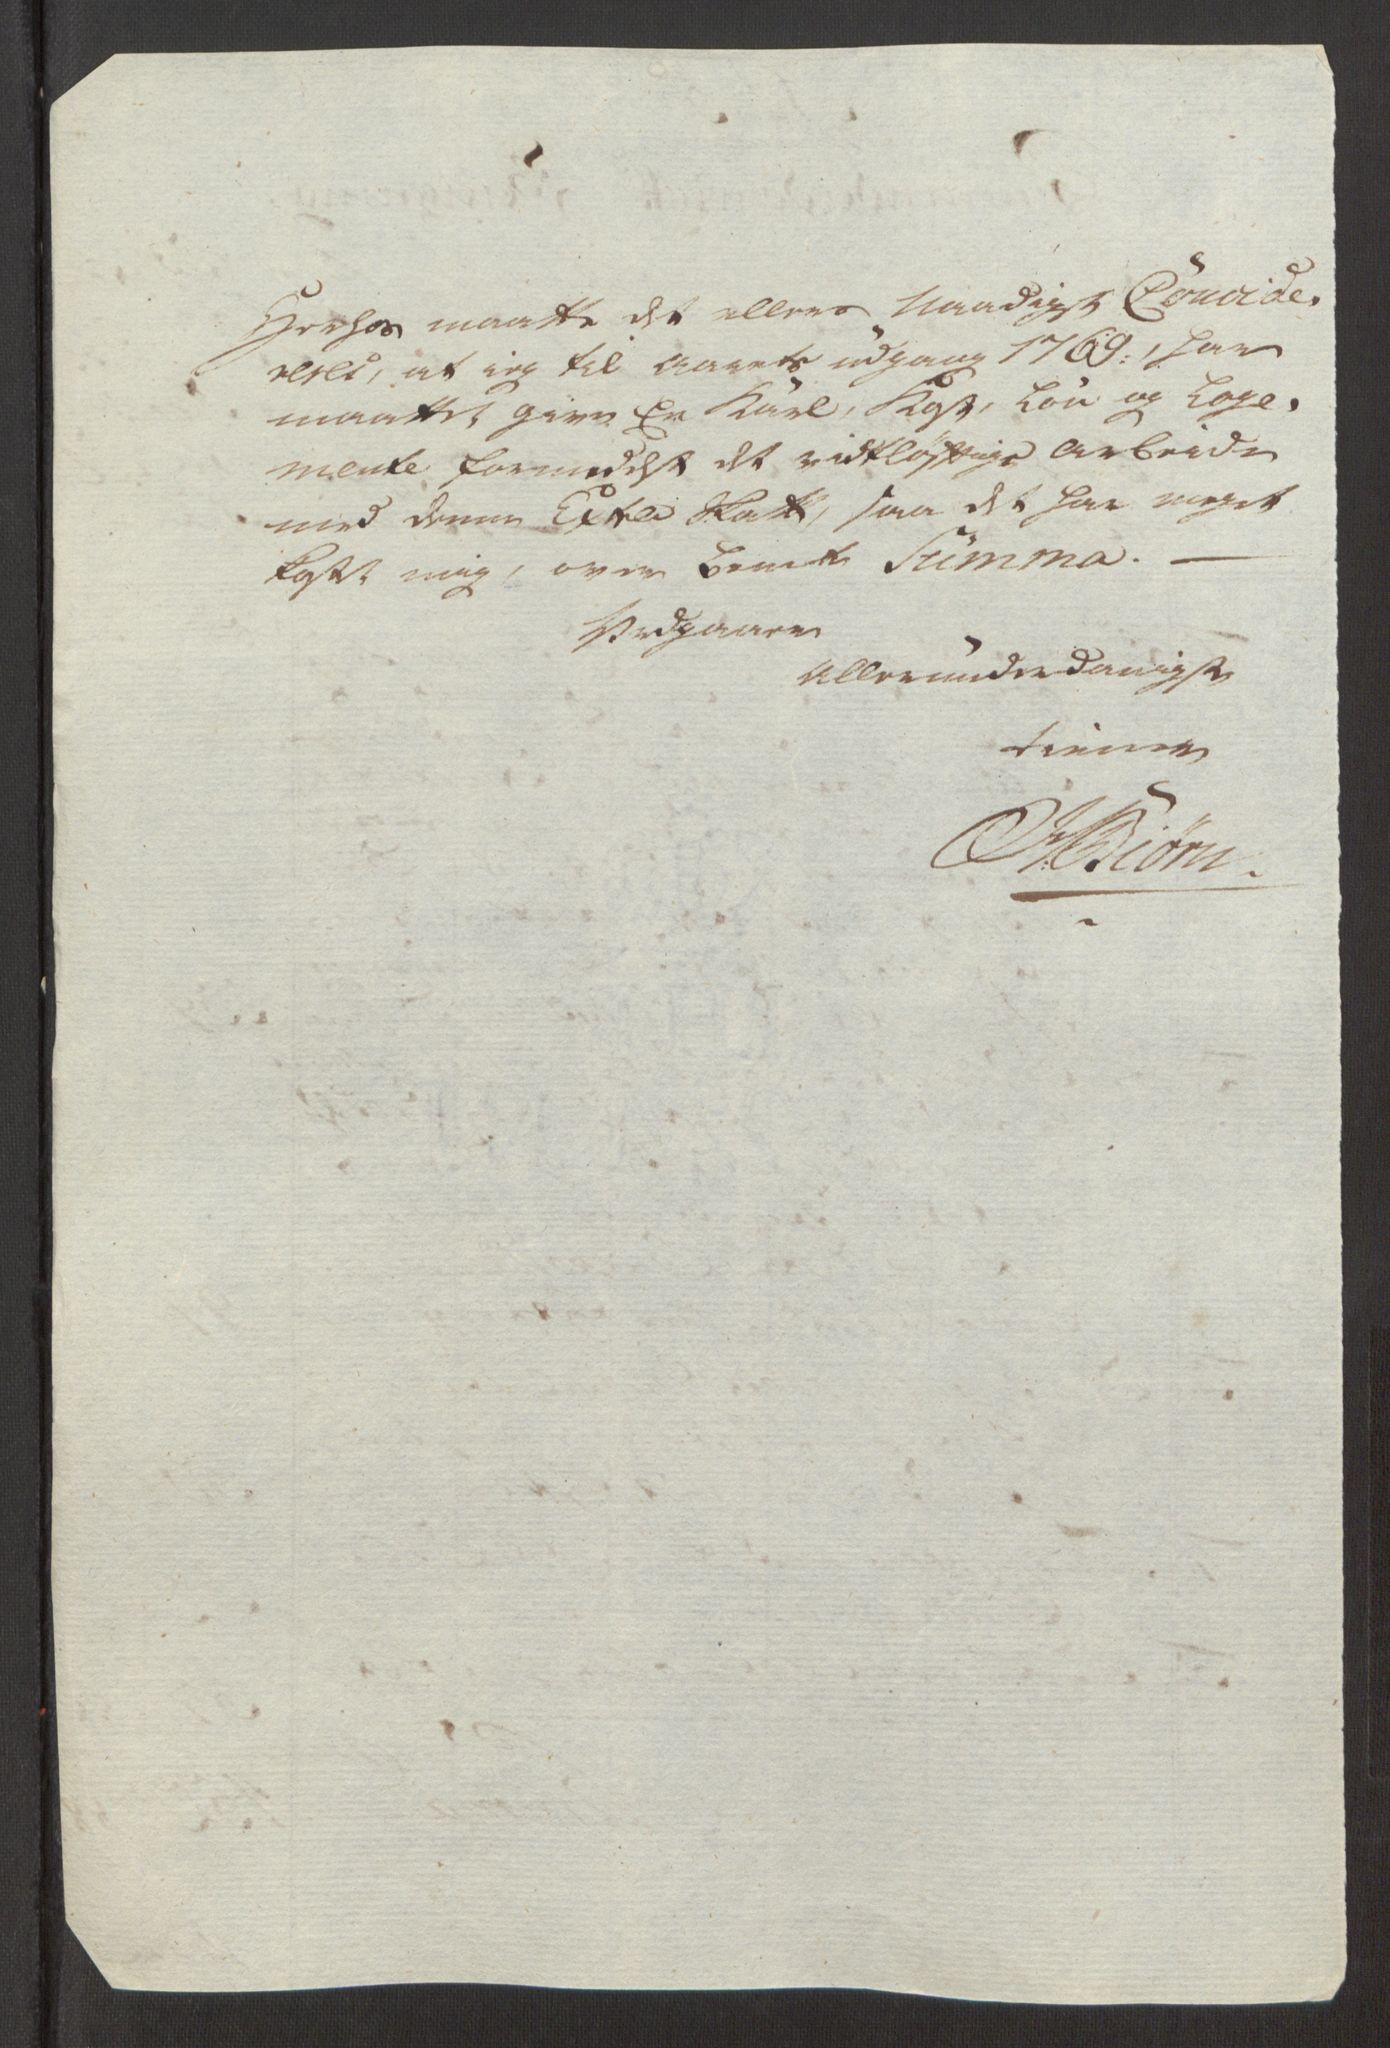 Herhos maatte det ellers Naadigst Conside-
reris, at ieg til aarets udgang 1769:, har
maattet give En Karl, Kost, Løn og Loge-
mente formedelst det vidtløftige Arbeide
med denne Extra Skatt, saa det har meget
kostet mig, over bemte Summa. —
Vedgaaer
Allerunderdanigst
tiener
Biørn.